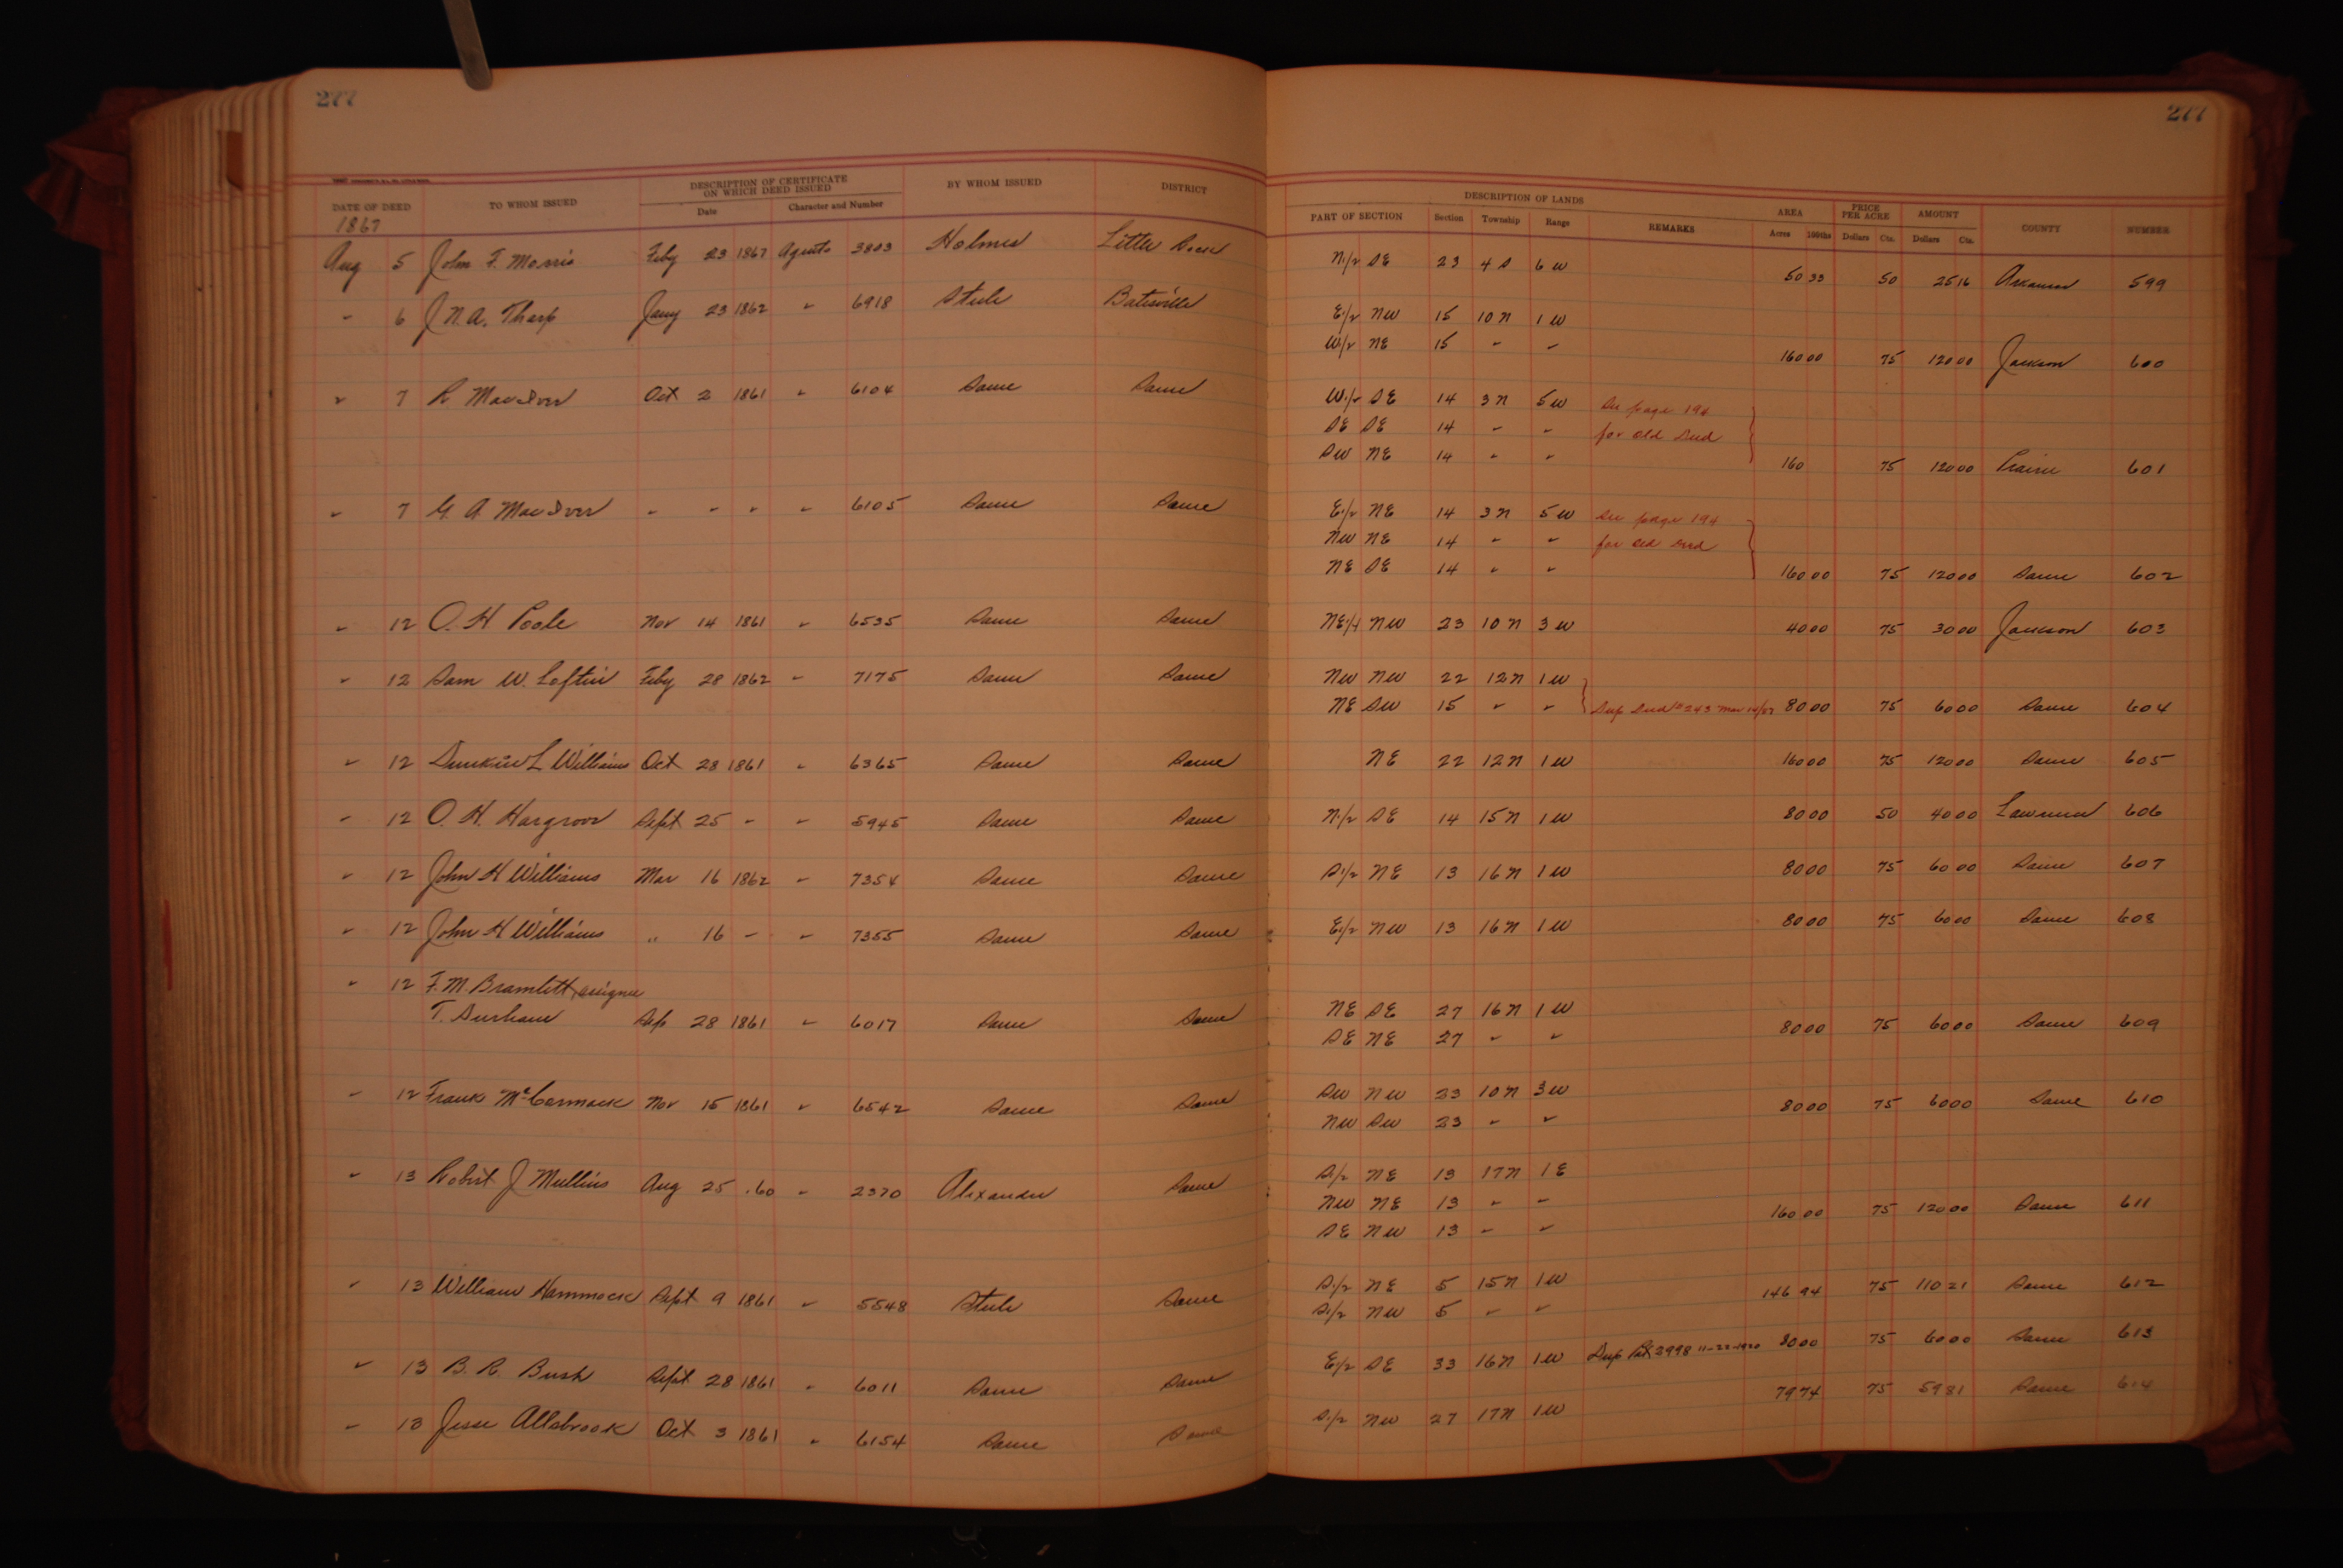 277 277
DESCRIPTION OF CERTIFICATE ON WHICH DEED ISSUED BY WHOM ISSUED DISTRICT DESCRIPTION OF LANDS
DATE OF DEED TO WHOM ISSUED Date Character and Number PART OF SECTION Section Township Range REMARKS AREA Acres 100ths PRICE PER ACRE Dollars Cts. AMOUNT Dollars Cts. COUNTY NUMBER
1867
Aug 5 John F. Morris Feby 23 1867 Agents 3803 Holmes Little Rock N 1/2 SE 23 4 S 6 W 50 33 50 25 16 Arkansas 599
" 6 J N. A. Tharp Jany 23 1862 " 6918 Steele Batesville E 1/2 NW 15 10 N 1 W
W 1/2 NE 15 " " 160 00 75 120 00 Jackson 600
" 7 R MacIver Oct 2 1861 " 6104 Same Same W 1/2 SE 14 3 N 5 W See page 194
SE SE 14 " " for old Deed
SW NE 14 " " 160 75 120 00 Prairie 601
" 7 G A MacIver " " " " 6105 Same Same E 1/2 NE 14 3 N 5 W See page 194
NW NE 14 " " for old Deed
NE SE 14 " " 160 00 75 120 00 Same 602
" 12 O. H Poole Nov 14 1861 " 6535 Same Same NE 1/4 NW 23 10 N 3 W 40 00 75 30 00 Jackson 603
" 12 Sam W. Loftin Feby 28 1862 " 7175 Same Same NW NW 22 12 N 1 W
NE SW 15 " " Dup Deed # 243 Mar 80 00 75 60 00 Same 604
" 12 L Williams Oct 28 1861 " 6365 Same Same NE 22 12 N 1 W 160 00 75 120 00 Same 605
" 12 O. H. Hargrove Sept 25 " " 5945 Same Same N 1/2 SE 14 15 N 1 W 80 00 50 40 00 Lawrence 606
" 12 John H Williams Mar 16 1862 " 7354 Same Same S 1/2 NE 13 16 N 1 W 80 00 75 60 00 Same 607
" 12 John H Williams " 16 " " 7355 Same Same E 1/2 NW 13 16 N 1 W 80 00 75 60 00 Same 608
" 12 F. M. Bramlett, assignee
T. Durham Sep 28 1861 " 6017 Same Same NE SE 27 16 N 1 W 80 00 75 60 00 Same 609
SE NE 27 " "
" 12 Frank McCormack Nov 15 1861 " 6542 Same Same SW NW 23 10 N 3 W 80 00 75 60 00 Same 610
NW SW 23 " "
" 13 Robert J Mullins Aug 25 .60 " 2370 Alexander Same S 1/2 NE 13 17 N 1 E
NW NE 13 " " 160 00 75 120 00 Same 611
SE NW 13 " "
" 13 William Hammock Sept 9 1861 " 5548 Steele Same S 1/2 NE 5 15 N 1 W 146 94 75 110 21 Same 612
S 1/2 NW 5 " "
" 13 B. R. Bush Sept 28 1861 " 6011 Same Same E 1/2 SE 33 16 N 1 W Dup Pat 2998 11-22-1920 80 00 75 60 00 Same 613
" 13 Jesse Allsbrook Oct 3 1861 " 6154 Same Same S 1/2 NW 27 17 N 1 W 79 74 75 59 81 Same 614